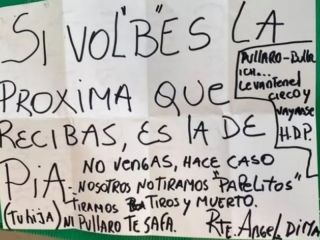 SI VOL"B"ES LA
PROXIMA QUE
RECIBAS, ES LA DE
PIA
(TU HIJA)
NO VENGAS, HACE CASO
NOSOTROS NO TIRAMOS "PAPELITOS"
TIRAMOS TIROS Y MUERTO.
NI PULLARO TE SAFA.
RTE. ANGEL DIMA
PULLARO-Bulla
ICH...
LEVANTEN EL
CIRCO Y
VAYANSE
H.D.P.